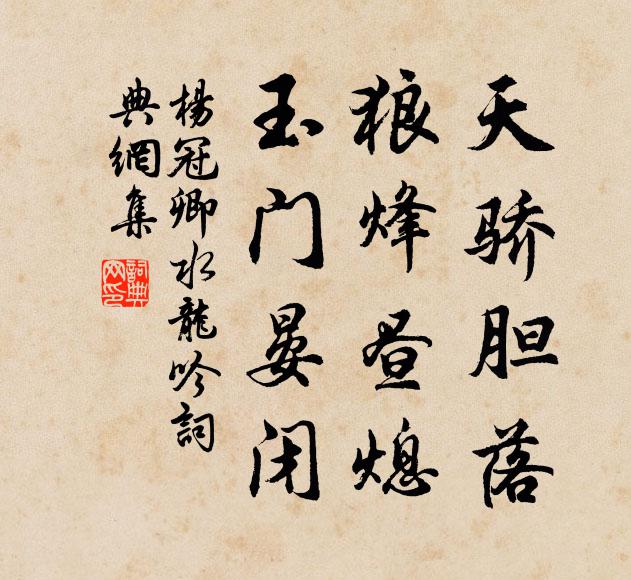 天骄胆落
狼烽昼熄
玉门晏闭
楊冠卿水龍吟詞
典網集
詞典网印